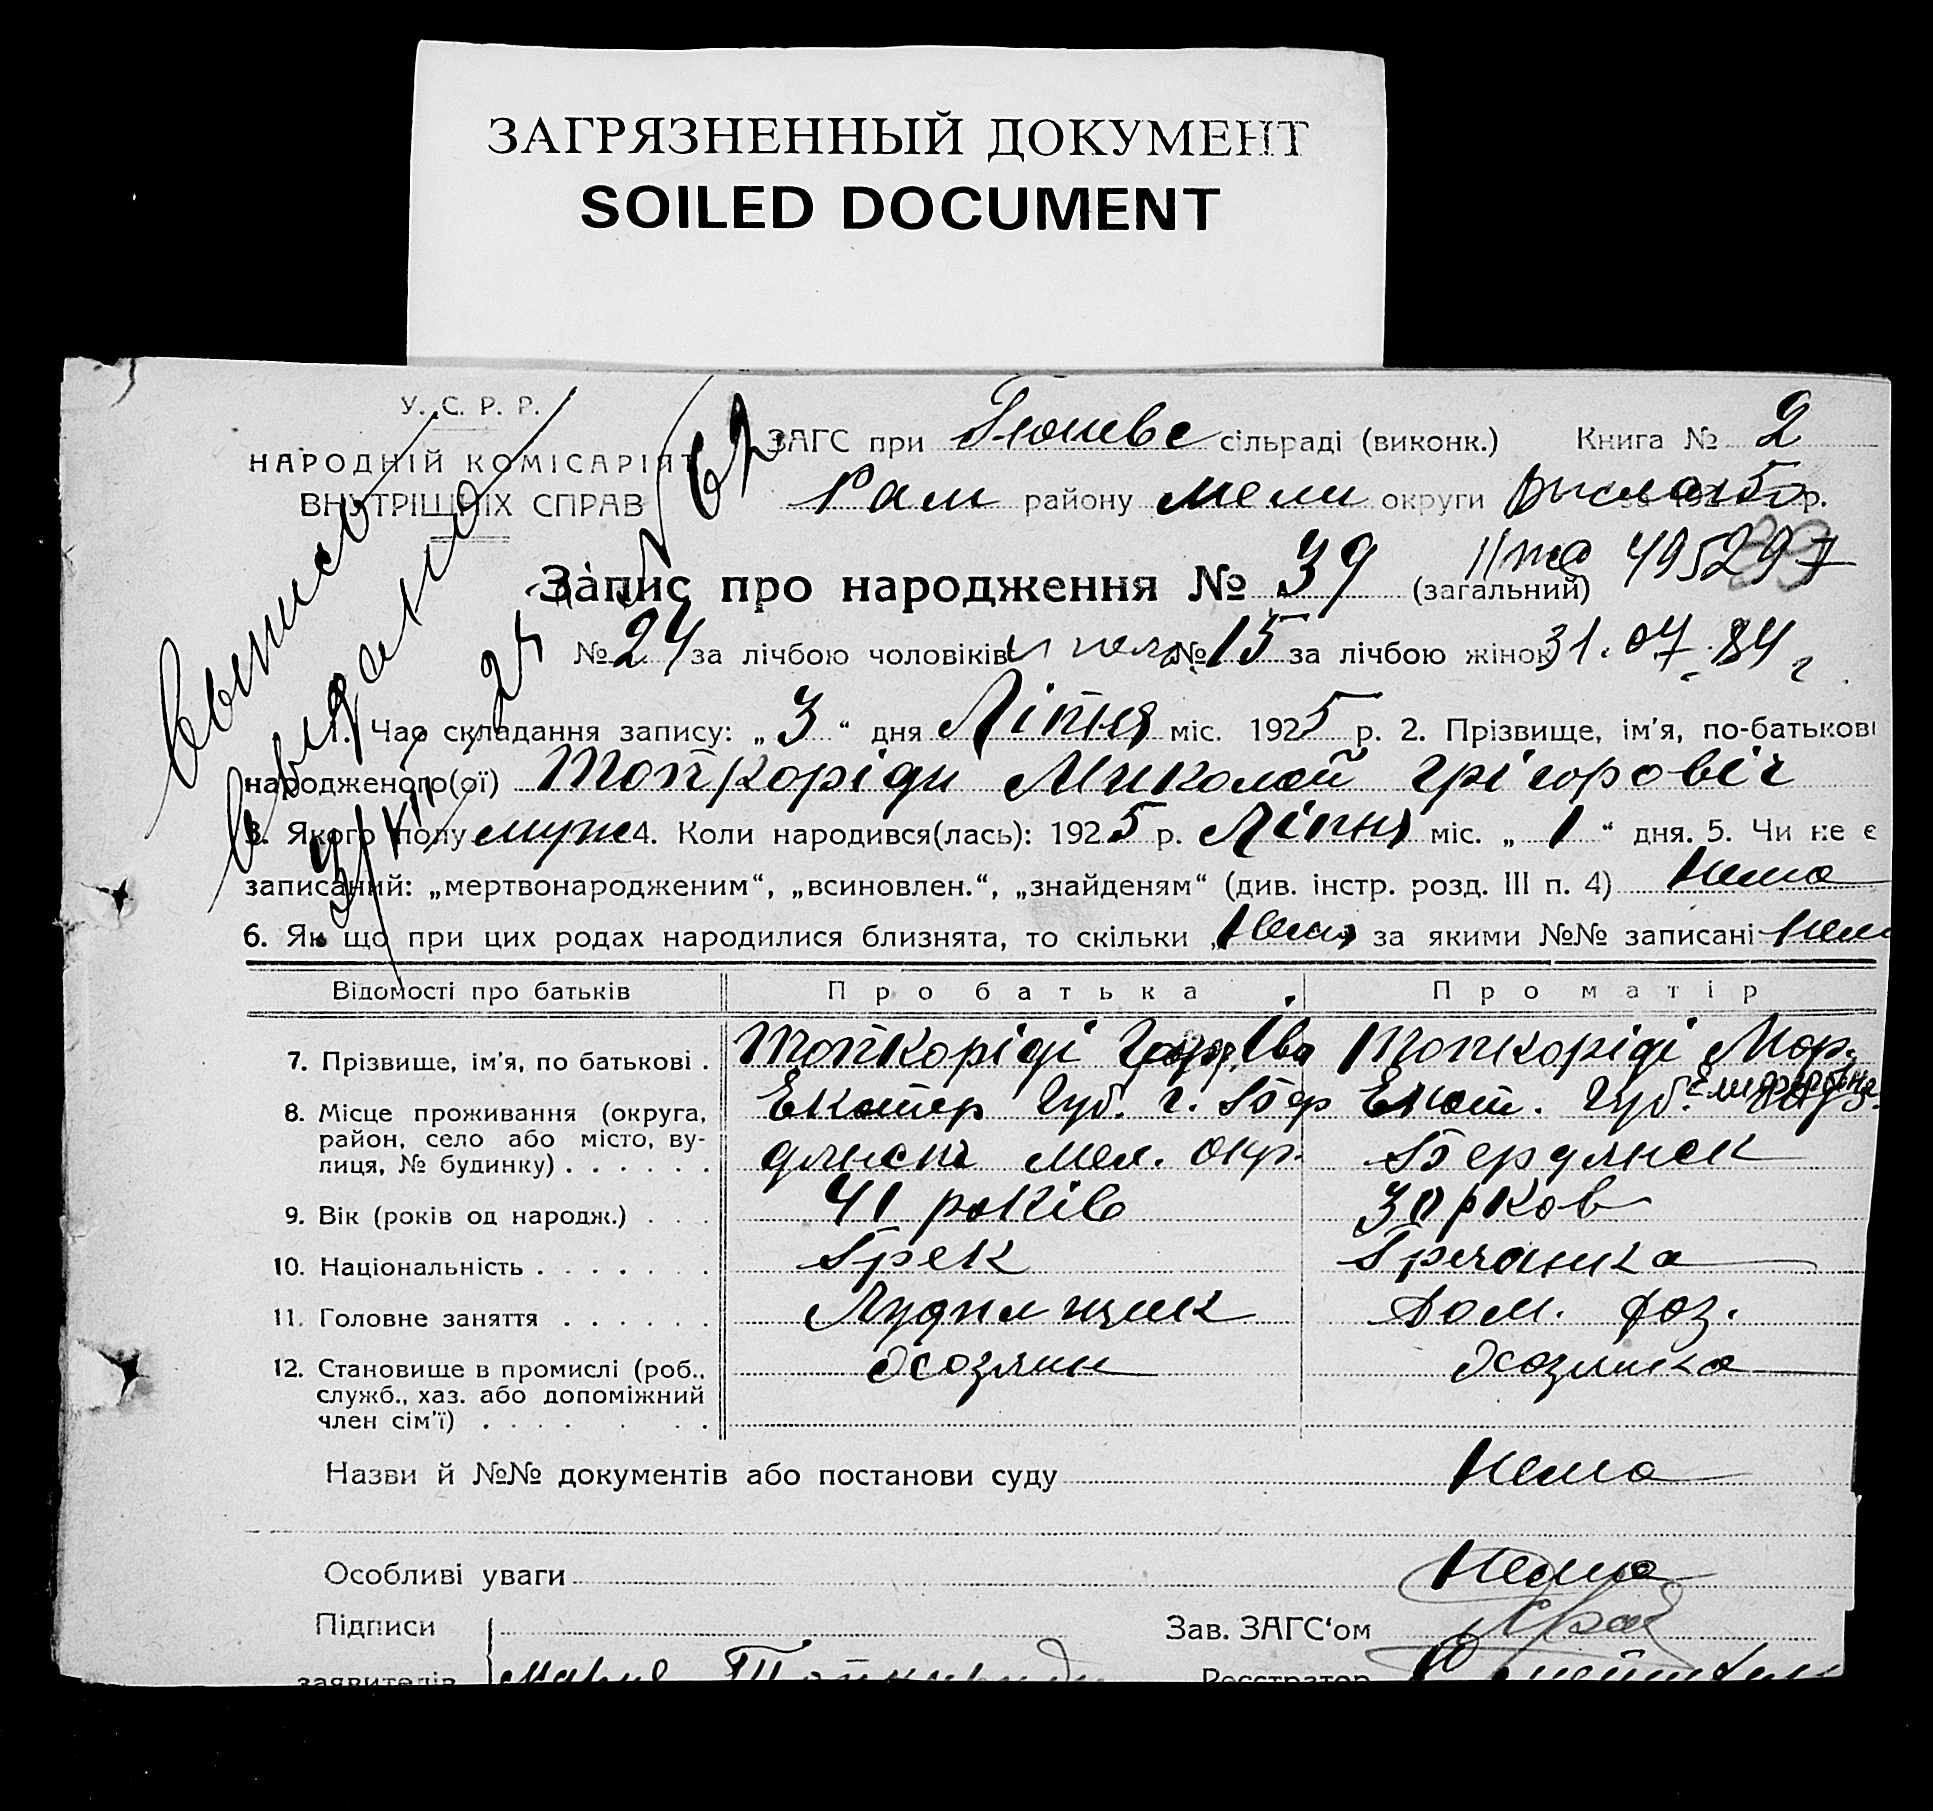 ЗАГРЯЗНЕННЫЙ ДОКУМЕНТ
SOILED DOCUMENT
У. С. Р. Р.
НАРОДНІЙ КОМІСАРІЯТ
ВНУТРІШНІХ СПРАВ
ЗАГС при сільраді (виконк.) Книга № 2
району Мели округи р.
выписано
62
Запис про народження № 39 (загальний)
495297
№ 24 за лічбою чоловіків № 15 за лічбою жінок 31.07.84 г.
1. Час складання запису: „ 3 “ дня Ліпня міс. 1925 р. 2. Прізвище, ім’я, по-батькові
народженого(ої) Топкоріди Миколай Грігоровіч
3. Якого полу муж 4. Коли народився(лась): 1925 р. Ліпня міс. „ 1 “ дня. 5. Чи не є
записаний: „мертвонародженим“, „всиновлен.“, „знайденям“ (див. інстр. розд. III п. 4) Нема
6. Як що при цих родах народилися близнята, то скільки „Нема за якими №№ записані Нема
Відомості про батьків Про батька Про матір
7. Прізвище, ім’я, по батькові . Топкоріді Ів Топкоріді Мар.
8. Місце проживання (округа, район, село або місто, вулиця, № будинку) . . . . . . Екатер Губ. г. Бердянськ Мел. Окр. Екат. Губ. Бердянск
9. Вік (років од народж.) . . . 41 років 30 рков
10. Національність . . . . . . . Грек Гречанка
11. Головне заняття . . . . . . Лудильщик Дом. хоз.
12. Становище в промислі (роб., служб., хаз. або допоміжний член сім’ї) . . . . . Хозяин Хозяика
Назви й №№ документів або постанови суду Нема
Особливі уваги Нема
Підписи Зав. ЗАГС‘ом
заявителів Реєстратор